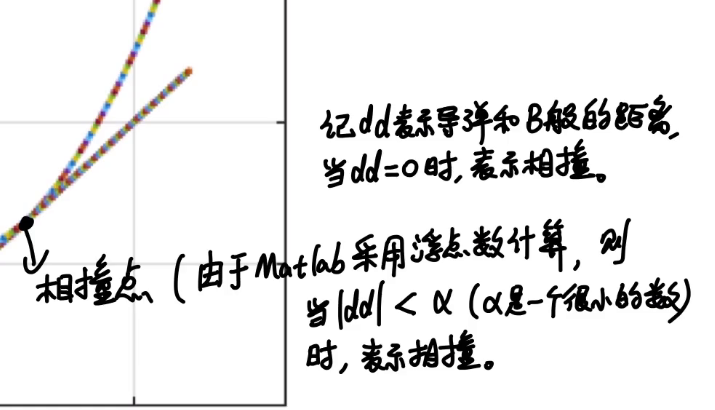 记dd表示导弹和B般的距离,
当dd=0时,表示相撞。
相撞点(由于Matlab采用浮点数计算,则
当|dd|<α(α是一个很小的数)
时,表示相撞。